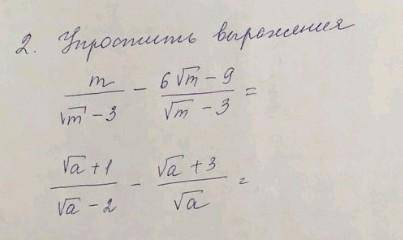 2. Упростить выражения
m/(√m - 3) - (6√m - 9)/(√m - 3) =
(√a + 1)/(√a - 2) - (√a + 3)/√a =